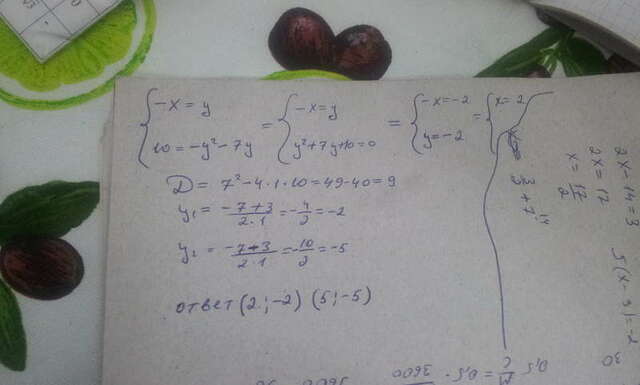 {-x=y = {-x=y = {-x=-2 = {x=2
{10=-y²-7y {y²+7y+10=0 {y=-2
D = 7²-4·1·10=49-40=9
y₁ = -7+3/2·1 = -4/2 = -2
y₂ = -7-3/2·1 = -10/2 = -5
ответ (2;-2) (5;-5)
2x-14=3
2x=17
x=17/2
5(x-3)=-2
30